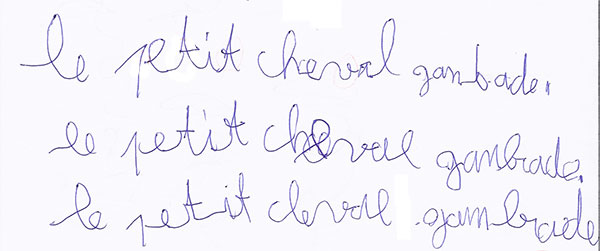 le petit cheval gambade.
le petit cheval gambade.
le petit cheval gambade